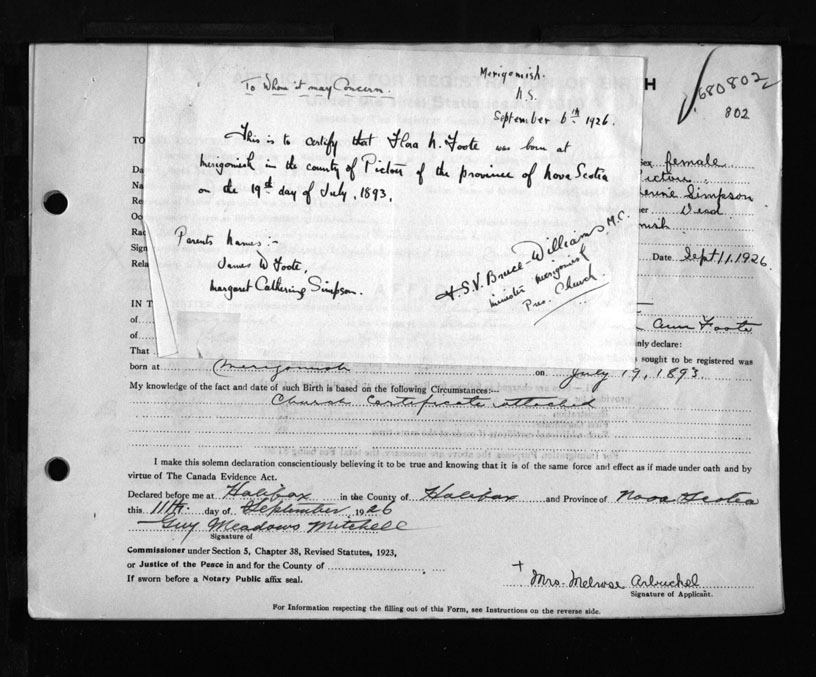 To Whom it may Concern.
Merigomish.
N.S.
September 6th 1926.
This is to certify that Flora N. Foote was born at
Merigomish in the county of Pictou of the province of Nova Scotia
on the 19th day of July, 1893.
Parents Names:-
James W Foote,
Margaret Catherine Simpson.
S.V. Bruce-Williams, M.C.
minister Merigomish
Pres. Church.
H
680802
802
TO
Da
Na
Re
Oc
Rac
Sign
Rela
Sex female
Pictou
erine Simpson
her Dead
mish
Date Sept 11. 1926.
IN T
of
of
Ann Foote
nly declare:
That
sought to be registered was
born at Merigomish on July 19, 1893
My knowledge of the fact and date of such Birth is based on the following Circumstances:—
Church Certificate attached
I make this solemn declaration conscientiously believing it to be true and knowing that it is of the same force and effect as if made under oath and by
virtue of The Canada Evidence Act.
Declared before me at Halifax in the County of Halifax and Province of Nova Scotia
this 11th. day of September, 1926
Guy Meadows Mitchell
Signature of
Commissioner under Section 5, Chapter 38, Revised Statutes, 1923,
or Justice of the Peace in and for the County of
If sworn before a Notary Public affix seal.
Mrs. Melrose Arbuckel
Signature of Applicant.
For Information respecting the filling out of this Form, see Instructions on the reverse side.